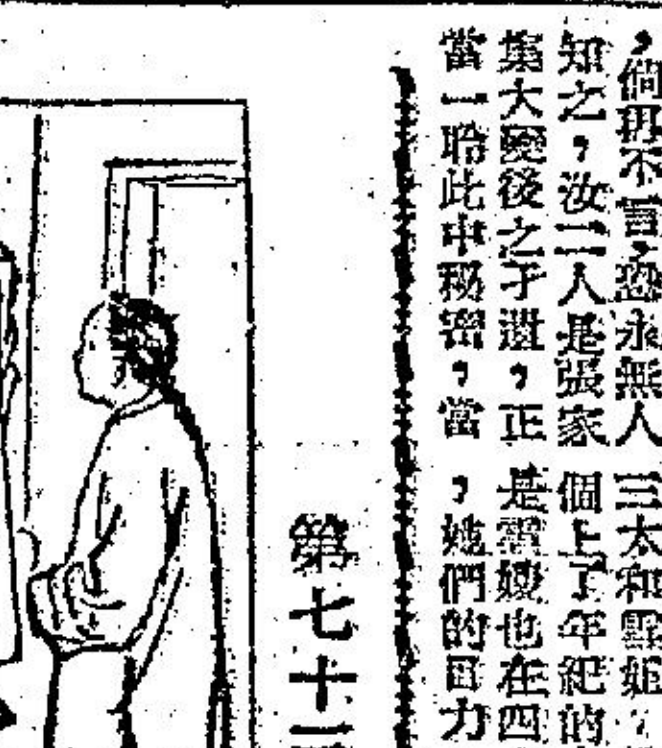 ，倘再不言，恐永無人
知之，汝二人是張家
集大變後之孑遺，正
當一聆此中秘密，當
三太和姬
個上了年紀的
是嫂也在四
，她們的目力
第七十